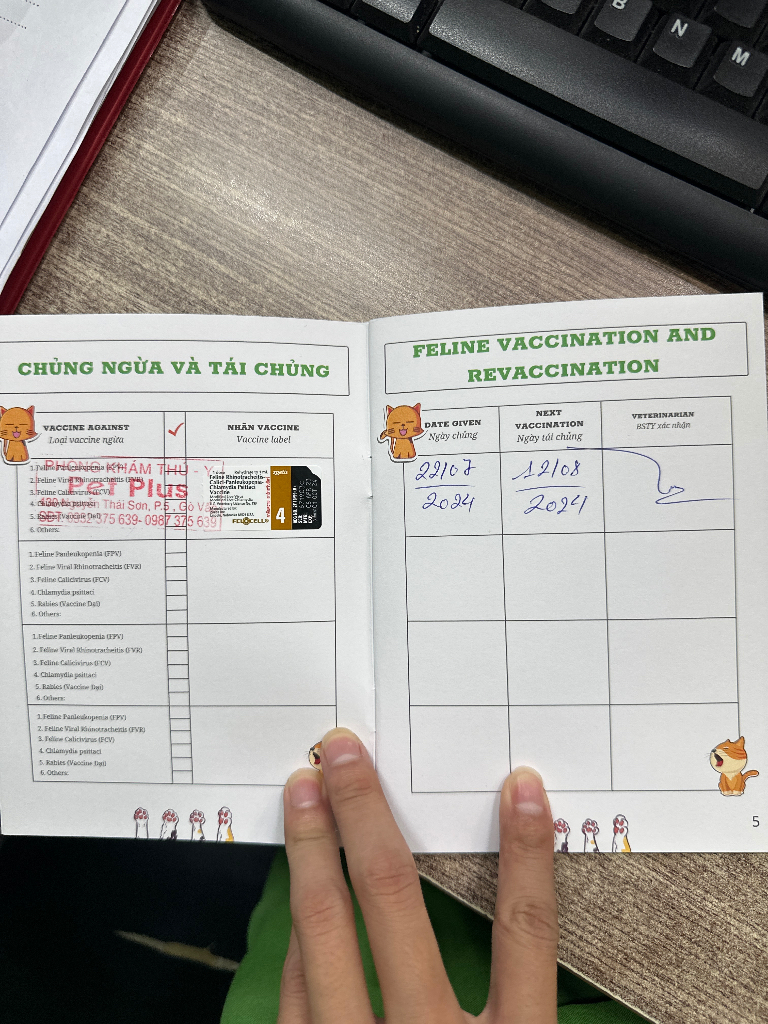 B
N
M
CHỦNG NGỪA VÀ TÁI CHỦNG
VACCINE AGAINST
Loại vaccine ngừa
NHÃN VACCINE
Vaccine label
PHÒNG KHÁM THÚ Y
Pet Plus
Thái Sơn, P.5, Gò
SĐT: 0932 375 639- 0987 375 639
1. Feline Panleukopenia (FPV)
2. Feline Viral Rhinotracheitis (FVR)
3. Feline Calicivirus (FCV)
4. Chlamydia psittaci
5. Rabies (Vaccine Dại)
6. Others:
Feline Rhinotracheitis-
Calici-Panleukopenia-
Chlamydia Psittaci
Vaccine
FELOCELL
4
zoetis
1. Feline Panleukopenia (FPV)
2. Feline Viral Rhinotracheitis (FVR)
3. Feline Calicivirus (FCV)
4. Chlamydia psittaci
5. Rabies (Vaccine Dại)
6. Others:
1. Feline Panleukopenia (FPV)
2. Feline Viral Rhinotracheitis (FVR)
3. Feline Calicivirus (FCV)
4. Chlamydia psittaci
5. Rabies (Vaccine Dại)
6. Others:
1. Feline Panleukopenia (FPV)
2. Feline Viral Rhinotracheitis (FVR)
3. Feline Calicivirus (FCV)
4. Chlamydia psittaci
5. Rabies (Vaccine Dại)
6. Others:
FELINE VACCINATION AND
REVACCINATION
DATE GIVEN
Ngày chủng
NEXT
VACCINATION
Ngày tái chủng
VETERINARIAN
BSTY xác nhận
22/07
2024
12/08
2024
5